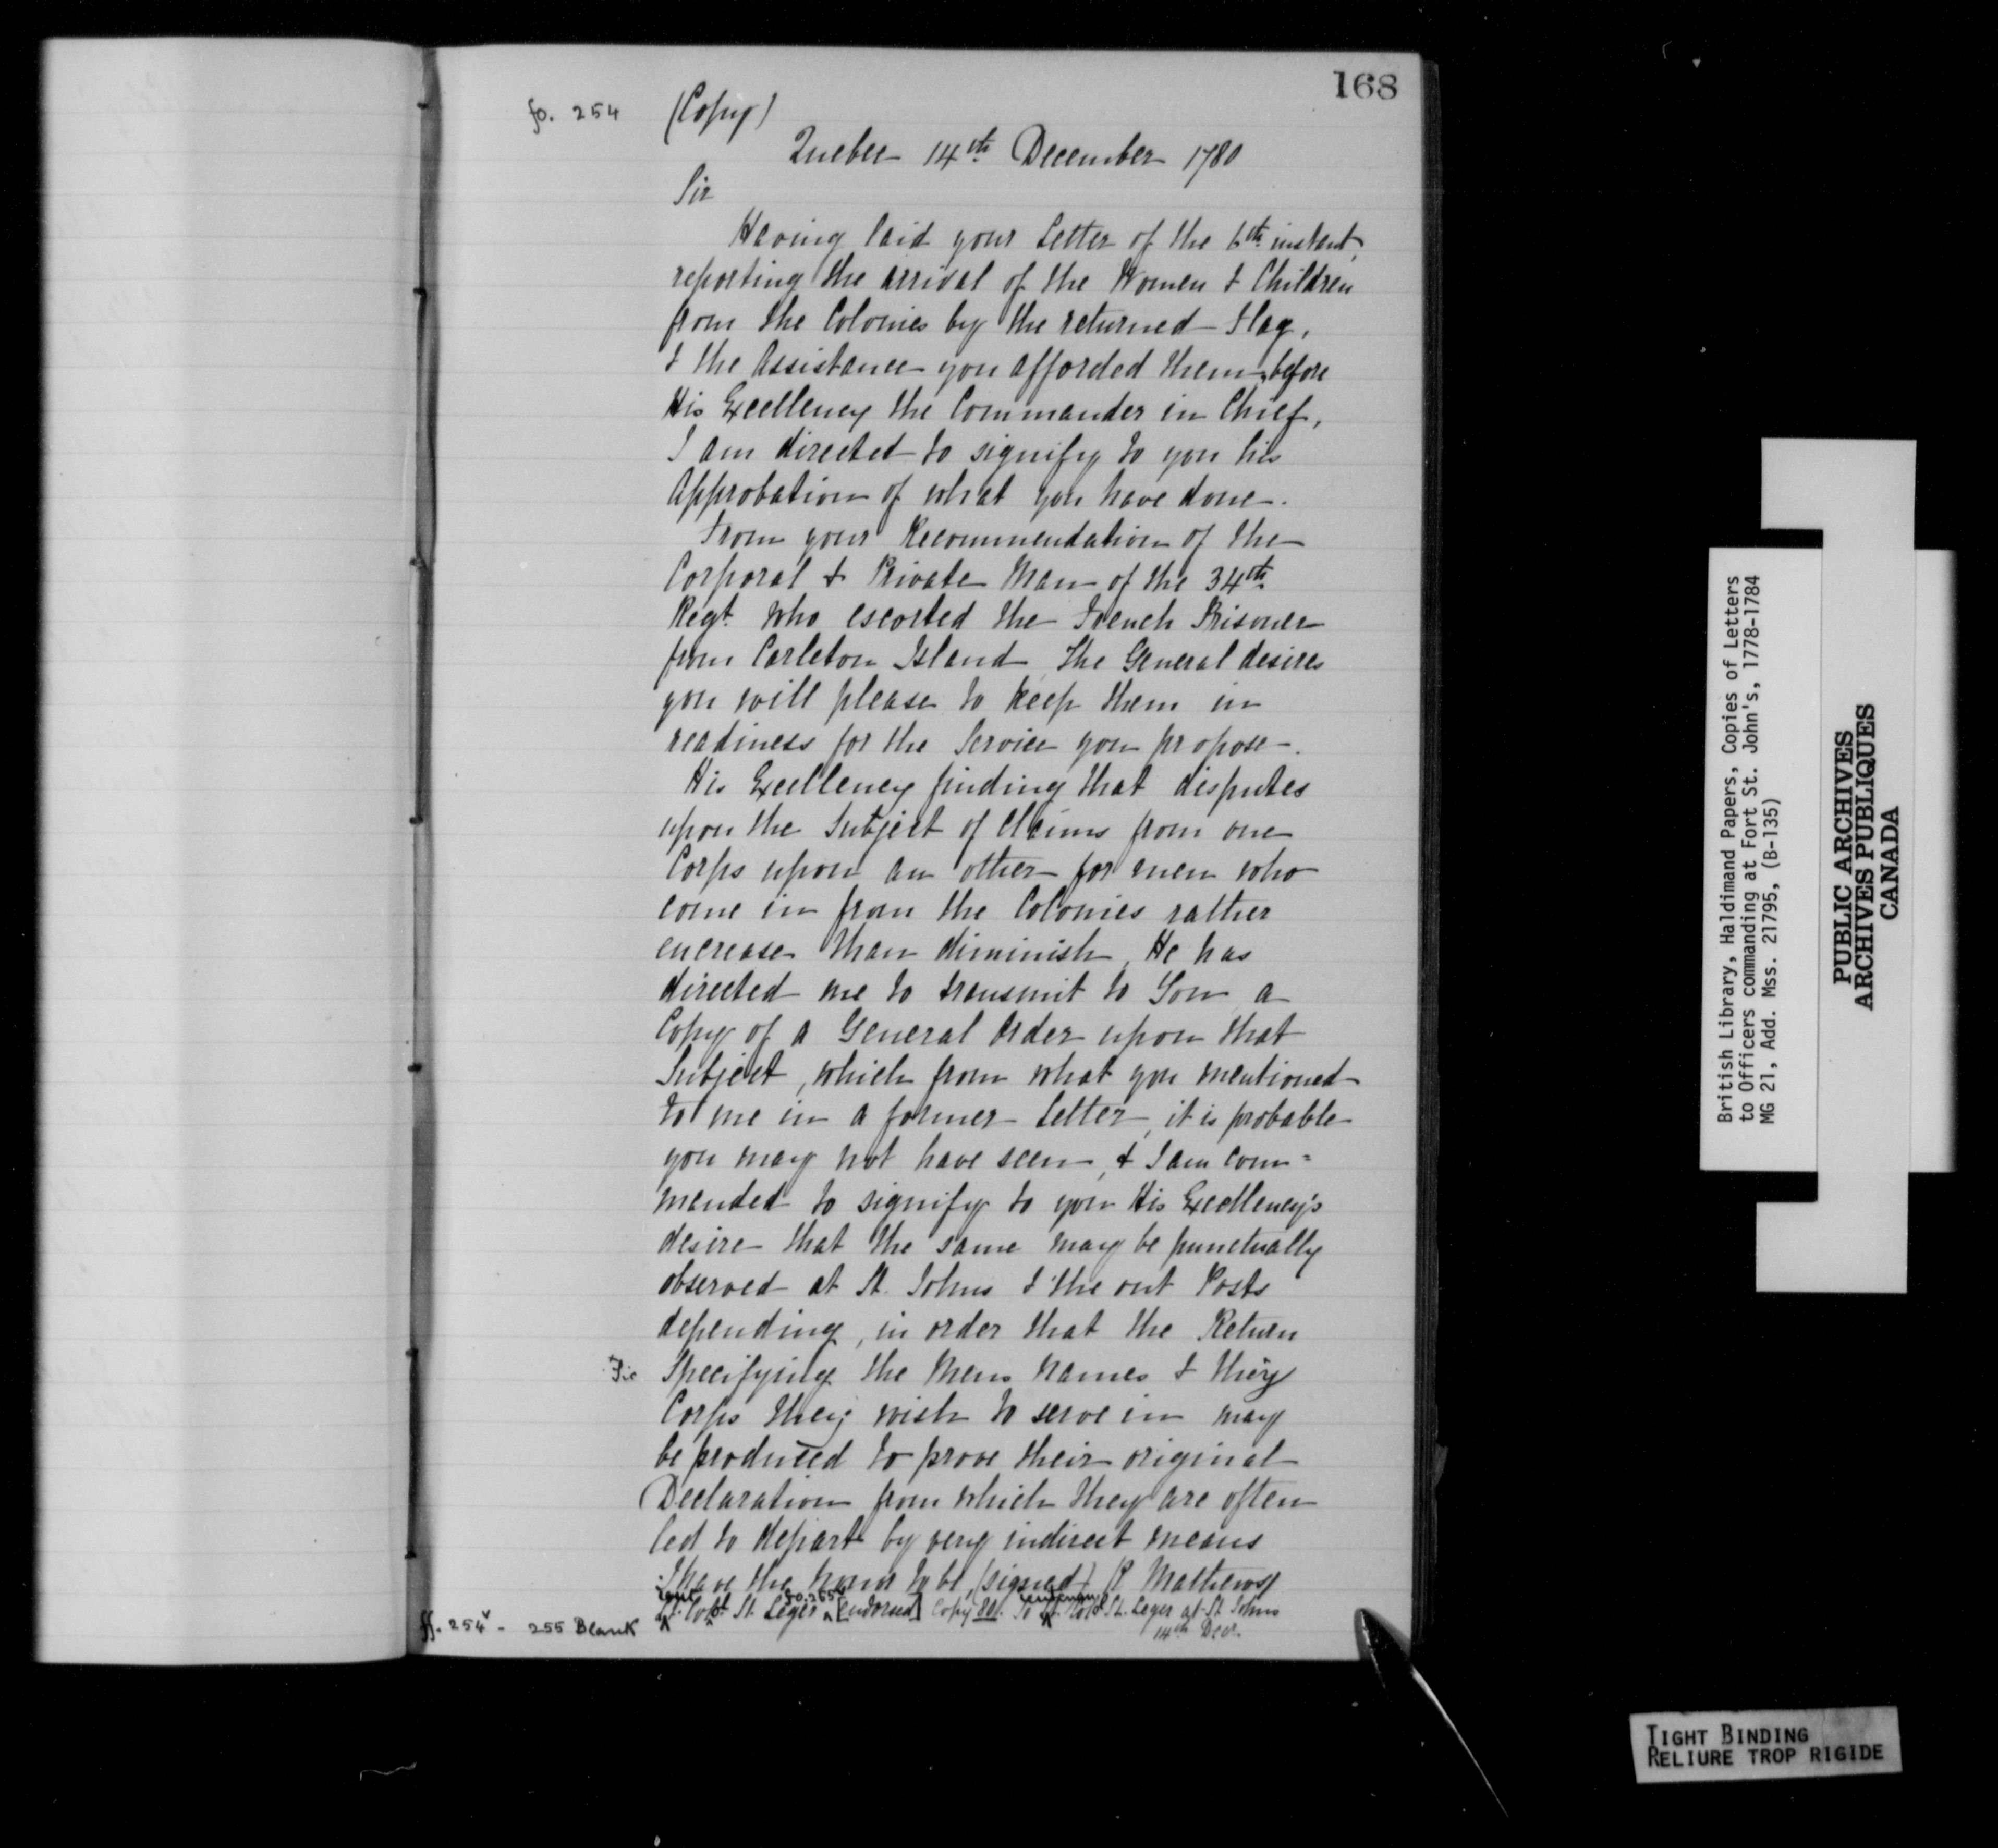 168
fo. 254
(Copy)
Quebec 14th December 1780
Sir
Having laid your Letter of the 6th instant,
reporting the arrival of the Women & Children
from the Colonies by the returned Flag,
& the Assistance you afforded them, before
His Excellency the Commander in Chief,
I am directed to signify to you his
Approbation of what you have done.
From your Recommendation of the
Corporal & Private Man of the 34th
Regt. who escorted the French Prisoner
from Carleton Island, the General desires
you will please to keep them in
readiness for the Service you propose.
His Excellency finding that disputes
upon the Subject of Claims from one
Corps upon an other for men who
come in from the Colonies rather
encrease than diminish, He has
directed me to transmit to You a
Copy of a General Order upon that
Subject, which from what you mentioned
to me in a former Letter, it is probable
you may not have seen, & I am com=
manded to signify to you His Excellency's
desire that the same may be punctually
observed at St. Johns & the out Posts
depending, in order that the Return
Specifying the Mens names & they
Corps they wish to serve in may
be produced to prove their original
Declaration from which they are often
led to depart by very indirect means
I have the honor to be, (signed) R Mathews
Lt. Col. St. Leger fo. 255v [endorsed] Copy 80. To Lt. Col. St. Leger at St. Johns
14th Decr.
ff. 254v - 255 Blank
British Library, Haldimand Papers, Copies of Letters
to Officers commanding at Fort St. John's, 1778-1784
MG 21, Add. Mss. 21795, (B-135)
PUBLIC ARCHIVES
ARCHIVES PUBLIQUES
CANADA
TIGHT BINDING
RELIURE TROP RIGIDE